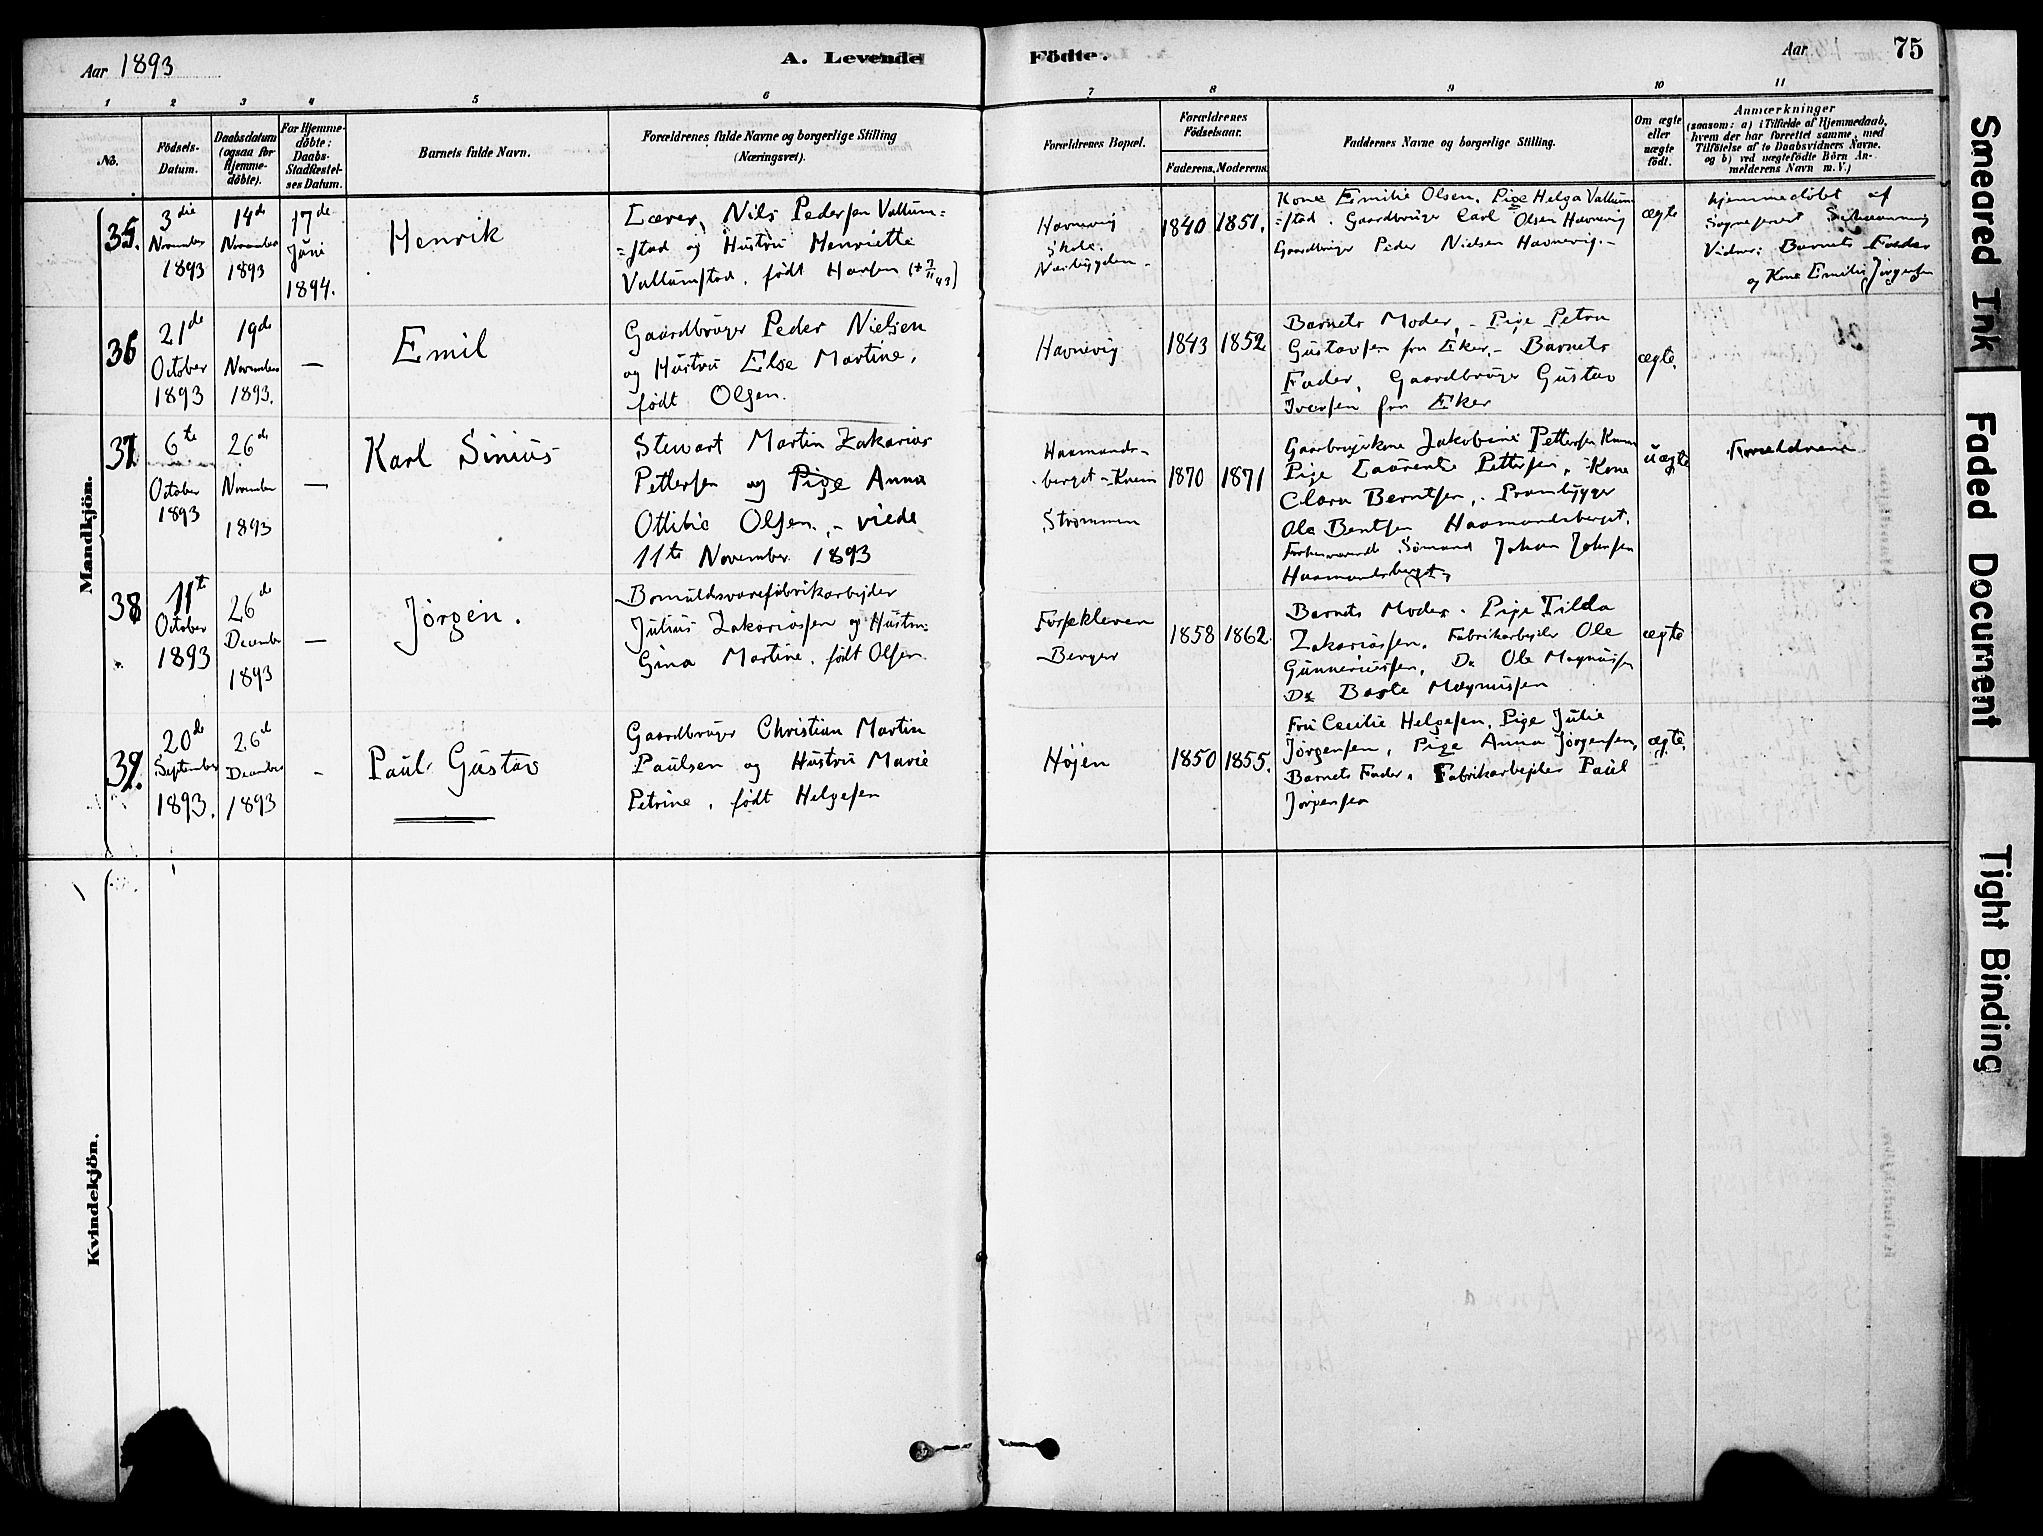 Aar 1893
A. Levende Födte.
Aar
75
1 2 3 4 5 6 7 8 9 10 11
No.
Födsels-
Datum.
Daabsdatum
(ogsaa for
Hjemme-
döbte).
For Hjemme-
döbte:
Daabs-
Stadfæstel-
ses Datum.
Barnets fulde Navn.
Forældrenes fulde Navne og borgerlige Stilling
(Næringsvei).
Forældrenes Bopæl.
Forældrenes
Födselsaar.
Faderens. Moderens.
Faddernes Navne og borgerlige Stilling.
Om ægte
eller
uægte
födt.
Anmærkninger
(saasom: a) i Tilfælde af Hjemmedaab,
hvem der har forrettet samme, med
Tilföielse af to Daabsvidners Navne,
og b) ved uægtefödte Börn An-
melderens Navn m.V.)
Mandkjön.
35.
3die
November
1893
14de
November
1893
17de
Juni
1894.
Henrik
Lærer, Nils Pedersen Vallum=
=stad og Hustru Henriette
Vallumstad, født Hansen
Havnevig
Skole.
Nærbygden.
1840 1851.
Kone Emilie Olsen. Pige Helga Vallum
=stad. Gaardbruger Carl Olsen Havnevig
Gaardbruger Peder Nielsen Havnevig.
ægte
hjemmedøbt af
Sognepræst
Vidner: Barnets Fader
og Kone Emilie Jørgensen
36
21de
October
1893
19de
November
1893.
—
Emil
Gaardbruger Peder Nielsen
og Hustru Else Martine,
født Olsen.
Havnevig
1843 1852
Barnets Moder, - Pige Petra
Gustavsen fra Eker. - Barnets
Fader, Gaardbruger Gustav
Iversen fra Eker
ægte.
37
6te
October
1893
26de
November
1893
—
Karl Sinius
Stewart Martin Zakarias
Pettersen og Pige Anna
Ottilie Olsen. - viede
11te November 1893
Haamands-
berget
Strømmen
1870 1871
Gaardbrugerkone Jakobine Pettersen
Pige Laurentze Pettersen, - Kone
Clara Berntsen, - Prambygger
Ole Bentsen Haamandsberget.
Forhenværende Sømand Johan Johnsen
Haamandsberget.
uægte
Forældrene
38
11te
October
1893
26de
December
1893
—
Jørgen.
Bomuldsvarefabrikarbejder
Julius Zakariassen og Hustru
Gina Martine, født Olsen.
Berger
1858 1862.
Barnets Moder. Pige Tilda
Zakariassen. Fabrikarbejder Ole
Gunneriussen, Do Ole Magnussen
Do Magnussen
ægte
39.
20de
September
1893.
26de
December
1893
-
Paul Gustav
Gaardbruger Christian Martin
Paulsen og Hustru Marie
Petrine, født Helgesen
Højen
1850 1855.
Fru Cecilie Helgesen. Pige Julie
Jørgensen, Pige Anna Jørgensen,
Barnets Fader. Fabrikarbejder Paul
Jørgensen
ægte.
Kvindekjön.
Smeared Ink
Faded Document
Tight Binding